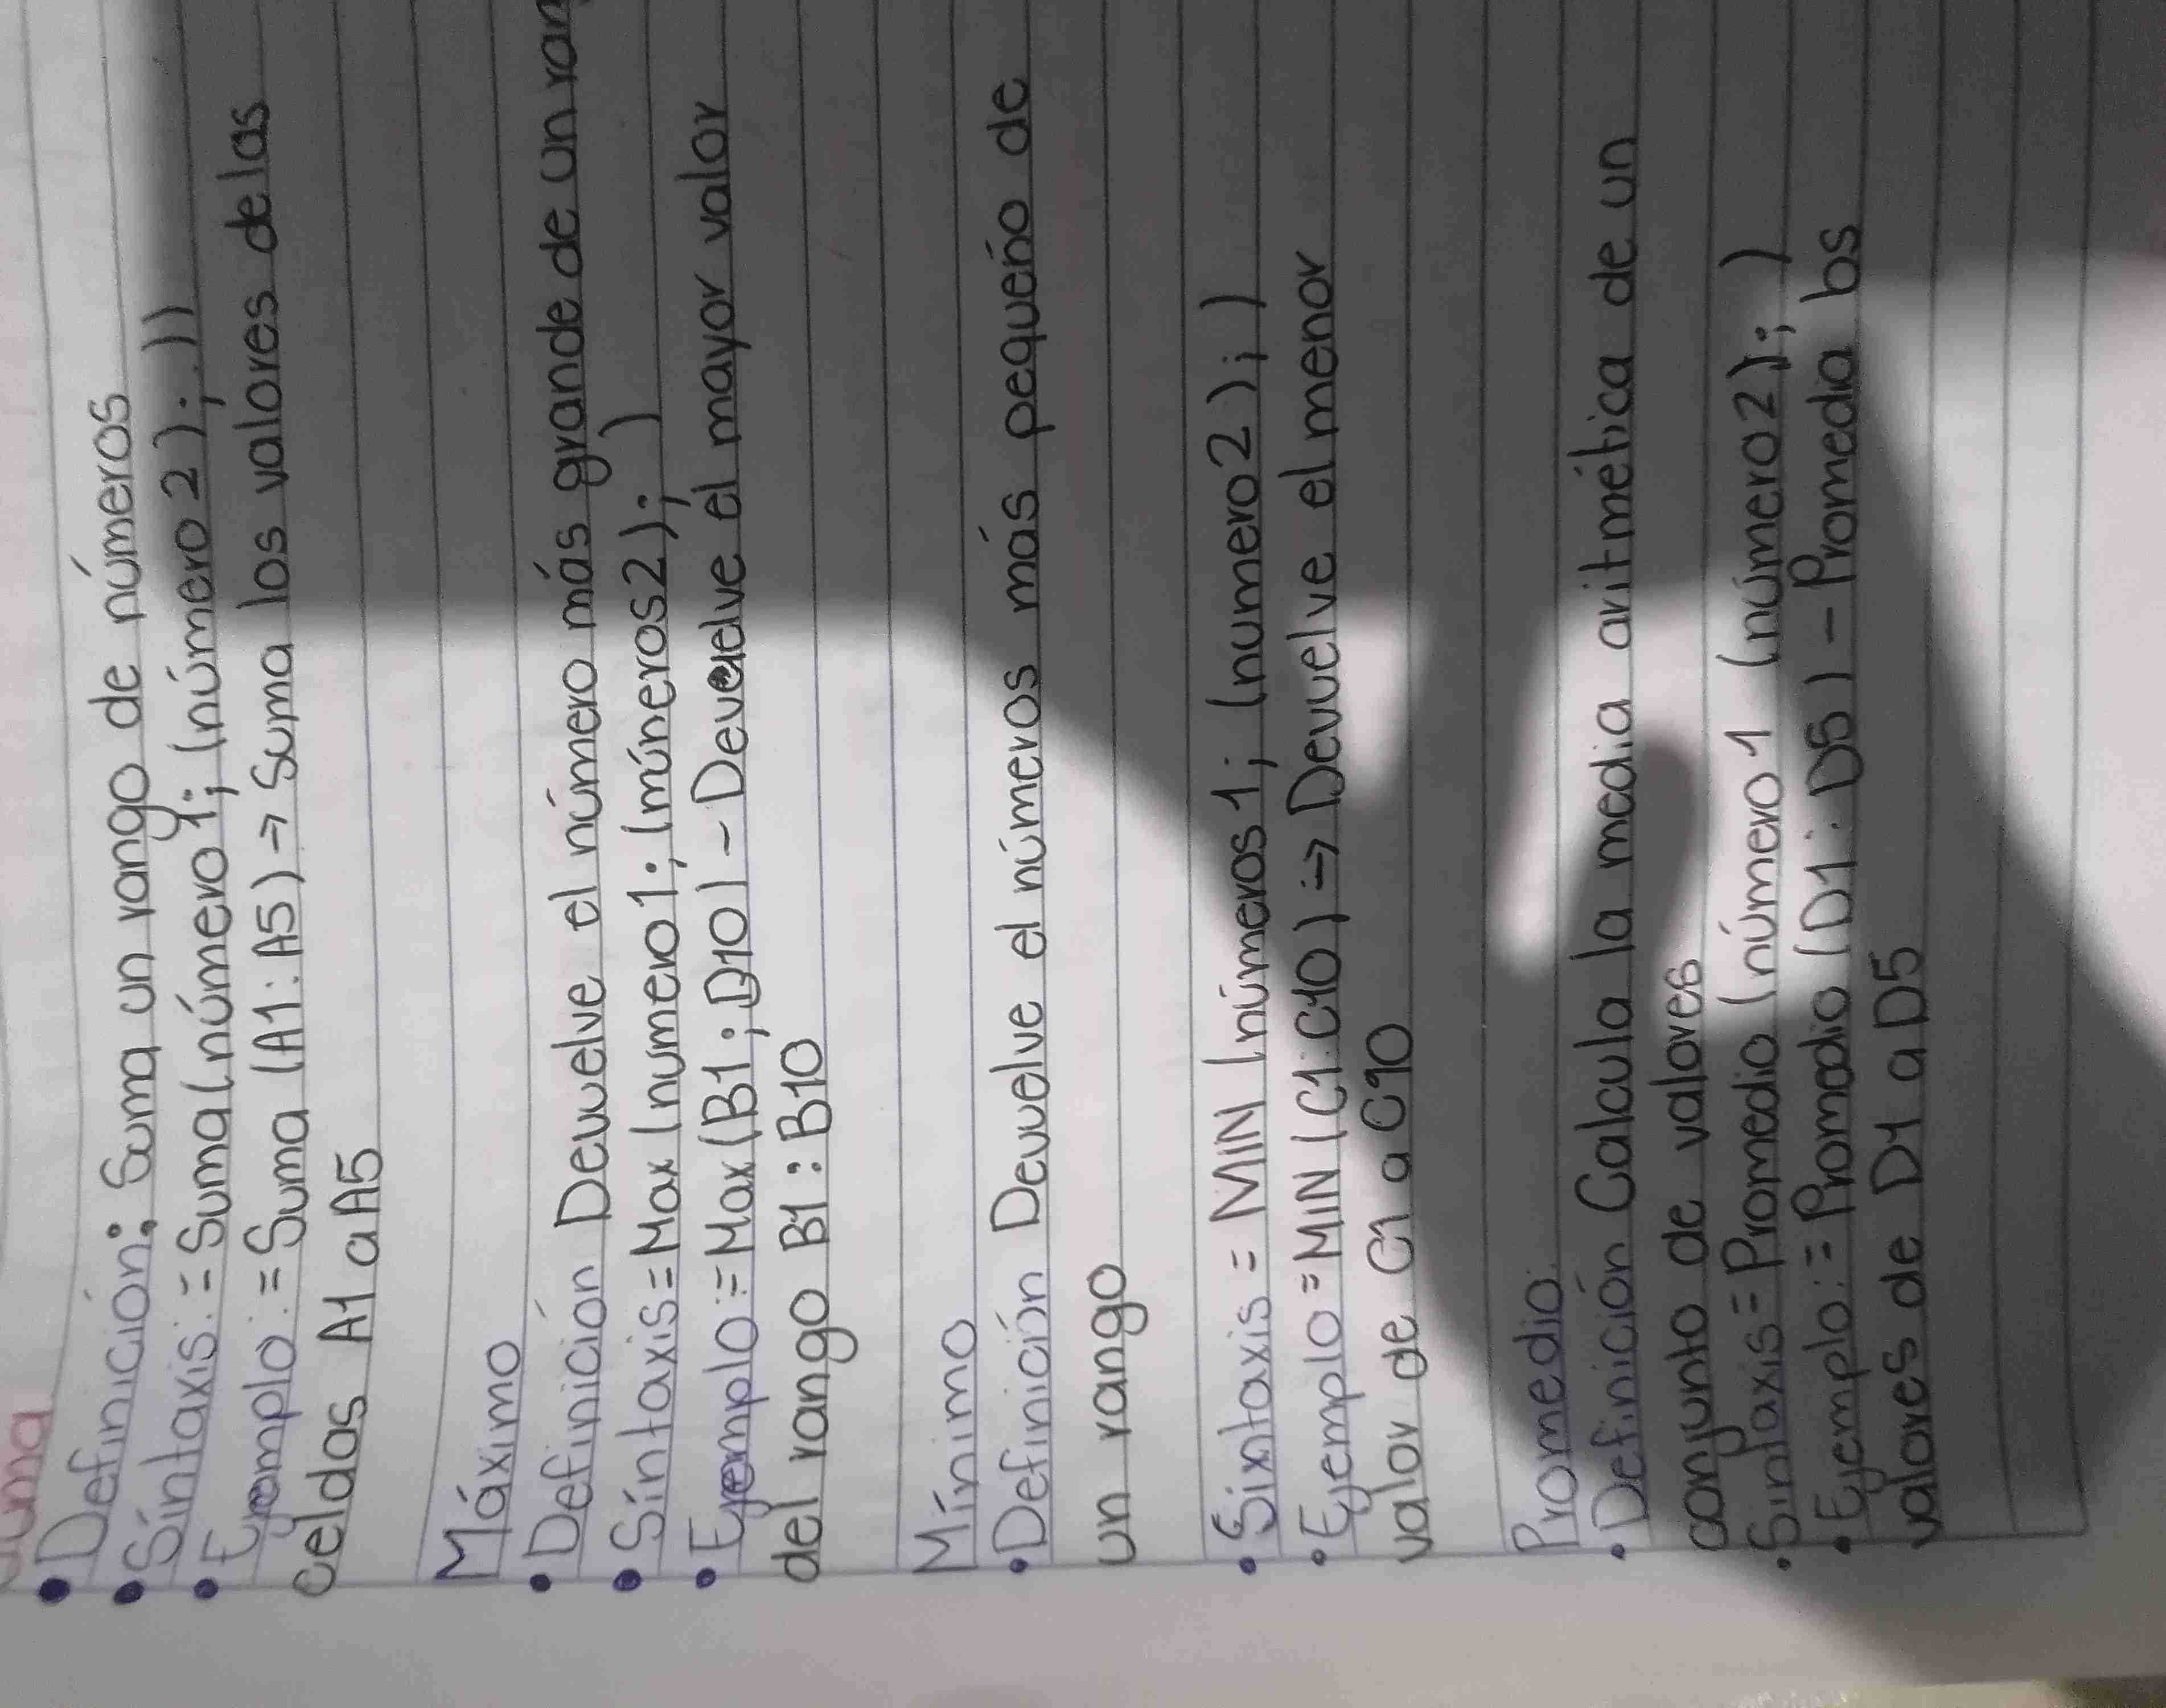 Suma
• Definición: Suma un rango de números
• Síntaxis: =Suma(número1; (número2); .))
• Ejemplo: =Suma (A1:A5) → Suma los valores de las
celdas A1 a A5
Máximo
• Definición Devuelve el número más grande de un ran
• Síntaxis=Max (numero1; (múneros2); )
• Ejemplo:=Max (B1; D10) - Devuelve el mayor valor
del rango B1:B10
Mínimo
• Definición Devuelve el números más pequeño de
un rango
• Sixtaxis = MIN (números1; (numero2); )
• Ejemplo=MIN (C1:C10) → Devuelve el menor
valor de C1 a C10
Promedio:
• Definición Calcula la media aritmética de un
conjunto de valores
• Sintaxis=Promedio (número1 (número2); )
• Ejemplo:=Promedio (D1:D5) - Promedia los
valores de D1 a D5